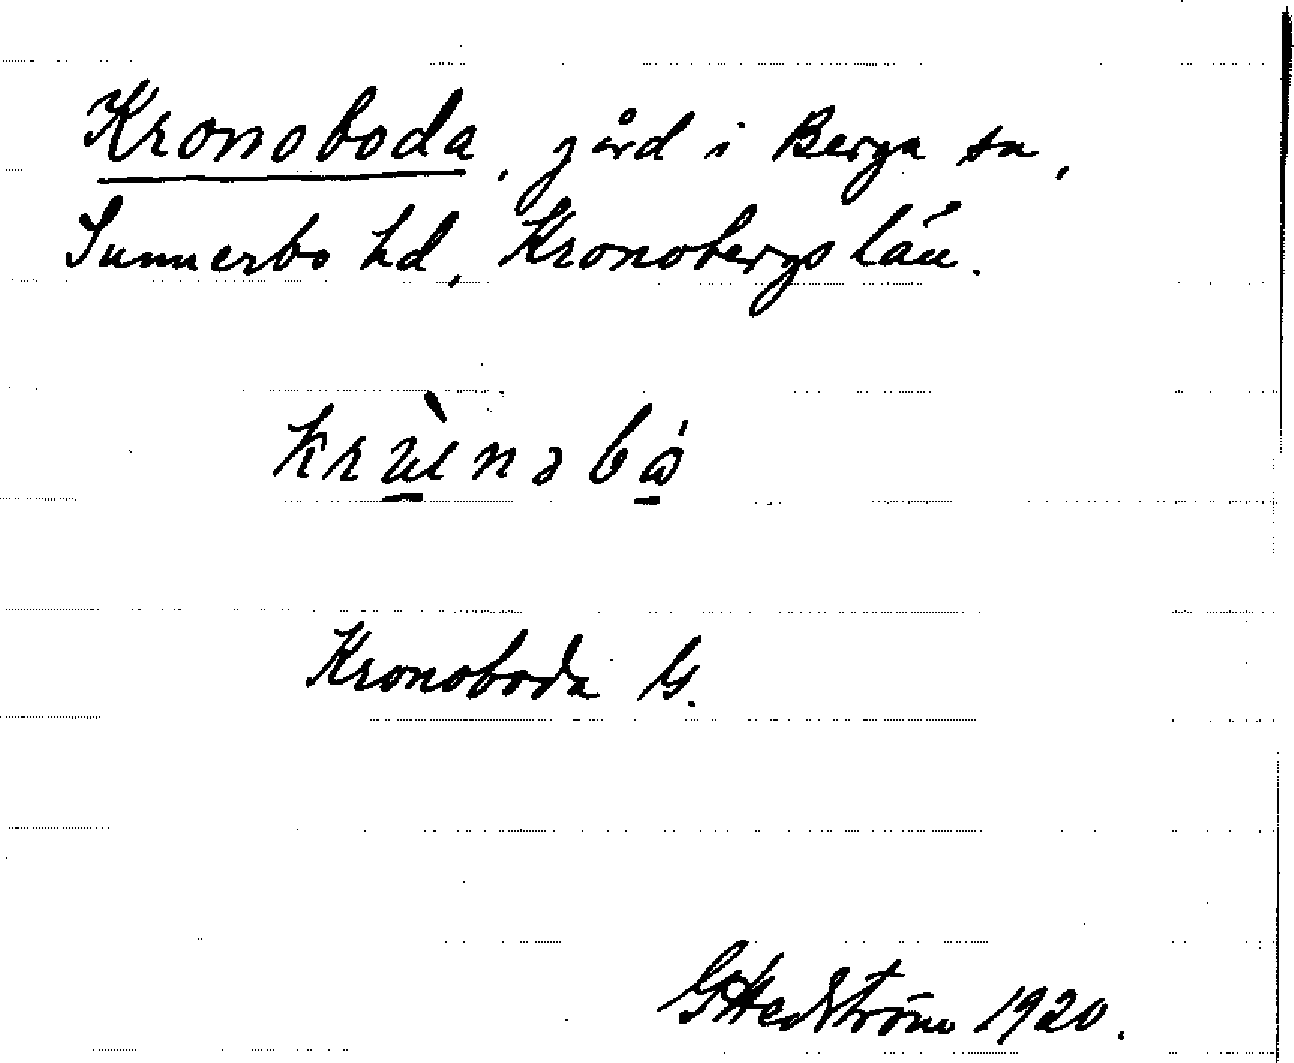 Kronoboda, gård i Berga sn,
Sunnerbo hd, Kronobergs län.
Kronoboda G.
G Hedström 1920.